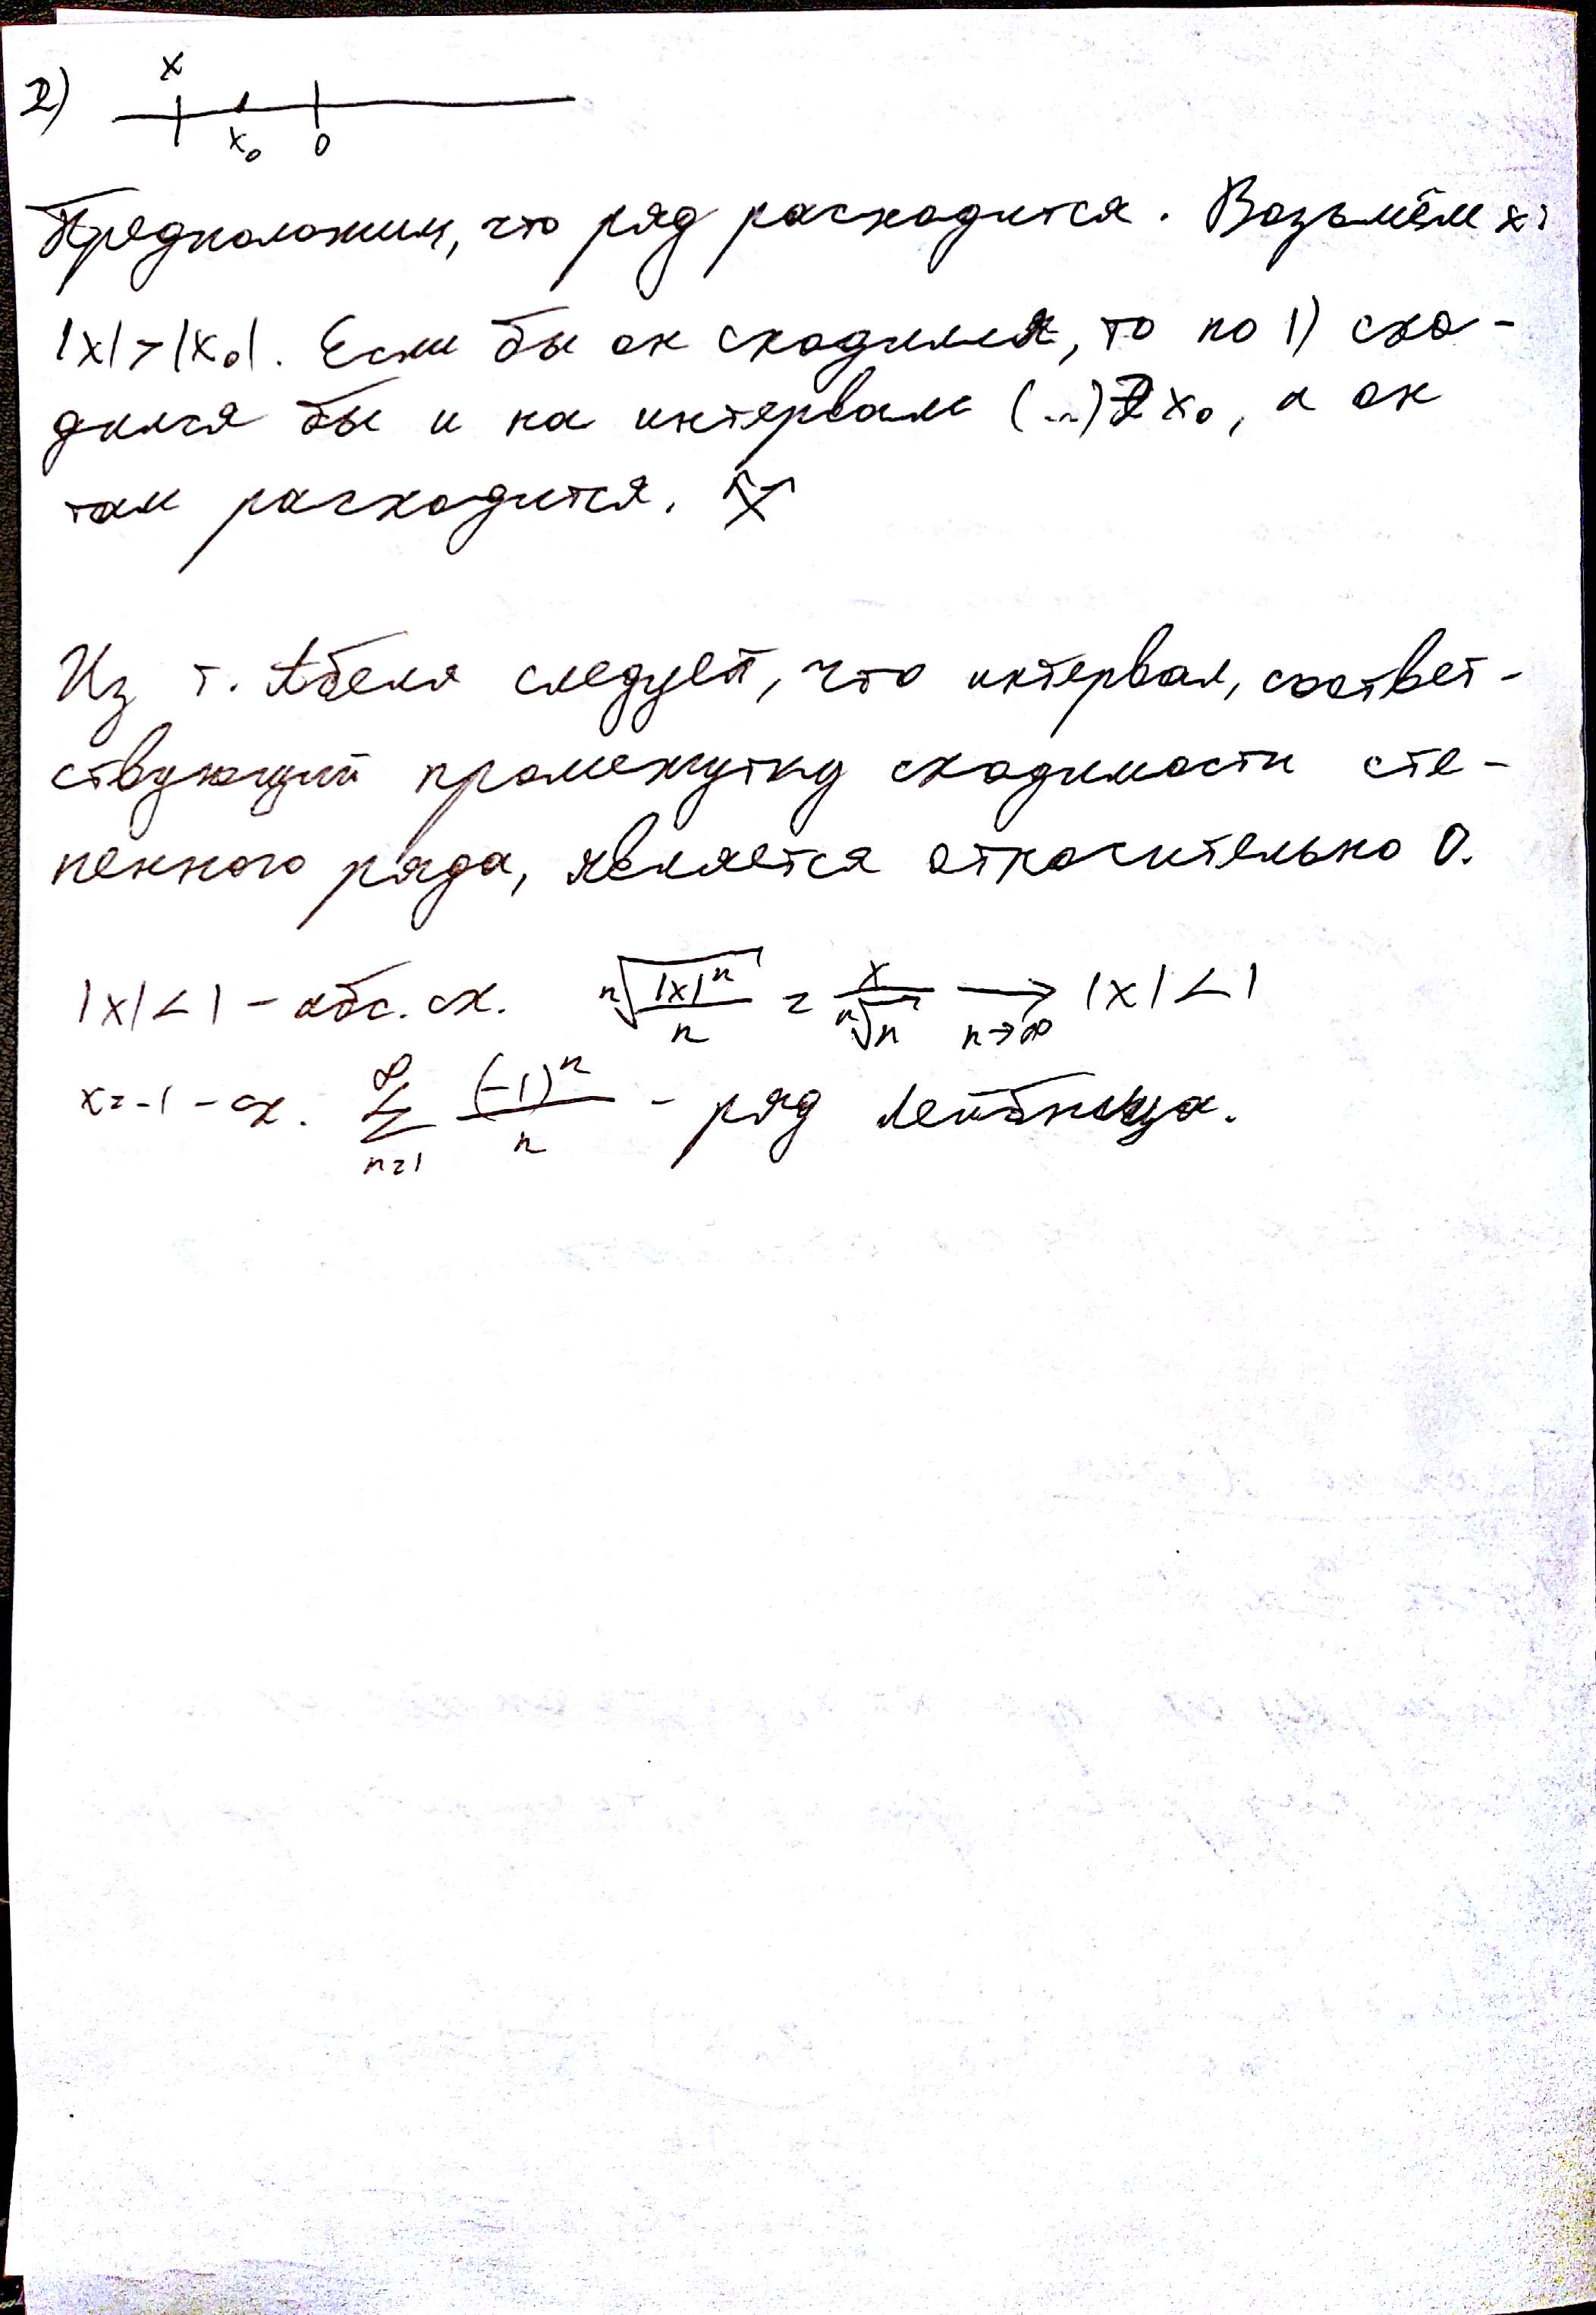 2)
x
x₀ 0
Предположим, что ряд расходится. Возьмём x:
|x|>|x₀|. Если бы он сходился, то по 1) схо-
дился бы и на интервале (...)∋x₀, а он
там расходится. X
Из т. Абеля следует, что интервал, соответ-
ствующий промежутку сходимости сте-
пенного ряда, является относительно 0.
|x|<1 - абс. сх. ⁿ√(|x|ⁿ/n) = x/ⁿ√n →(n→∞) |x|<1
x=-1 - сх. ∑_{n=1}^{∞} (-1)ⁿ/n - ряд Лейбница.